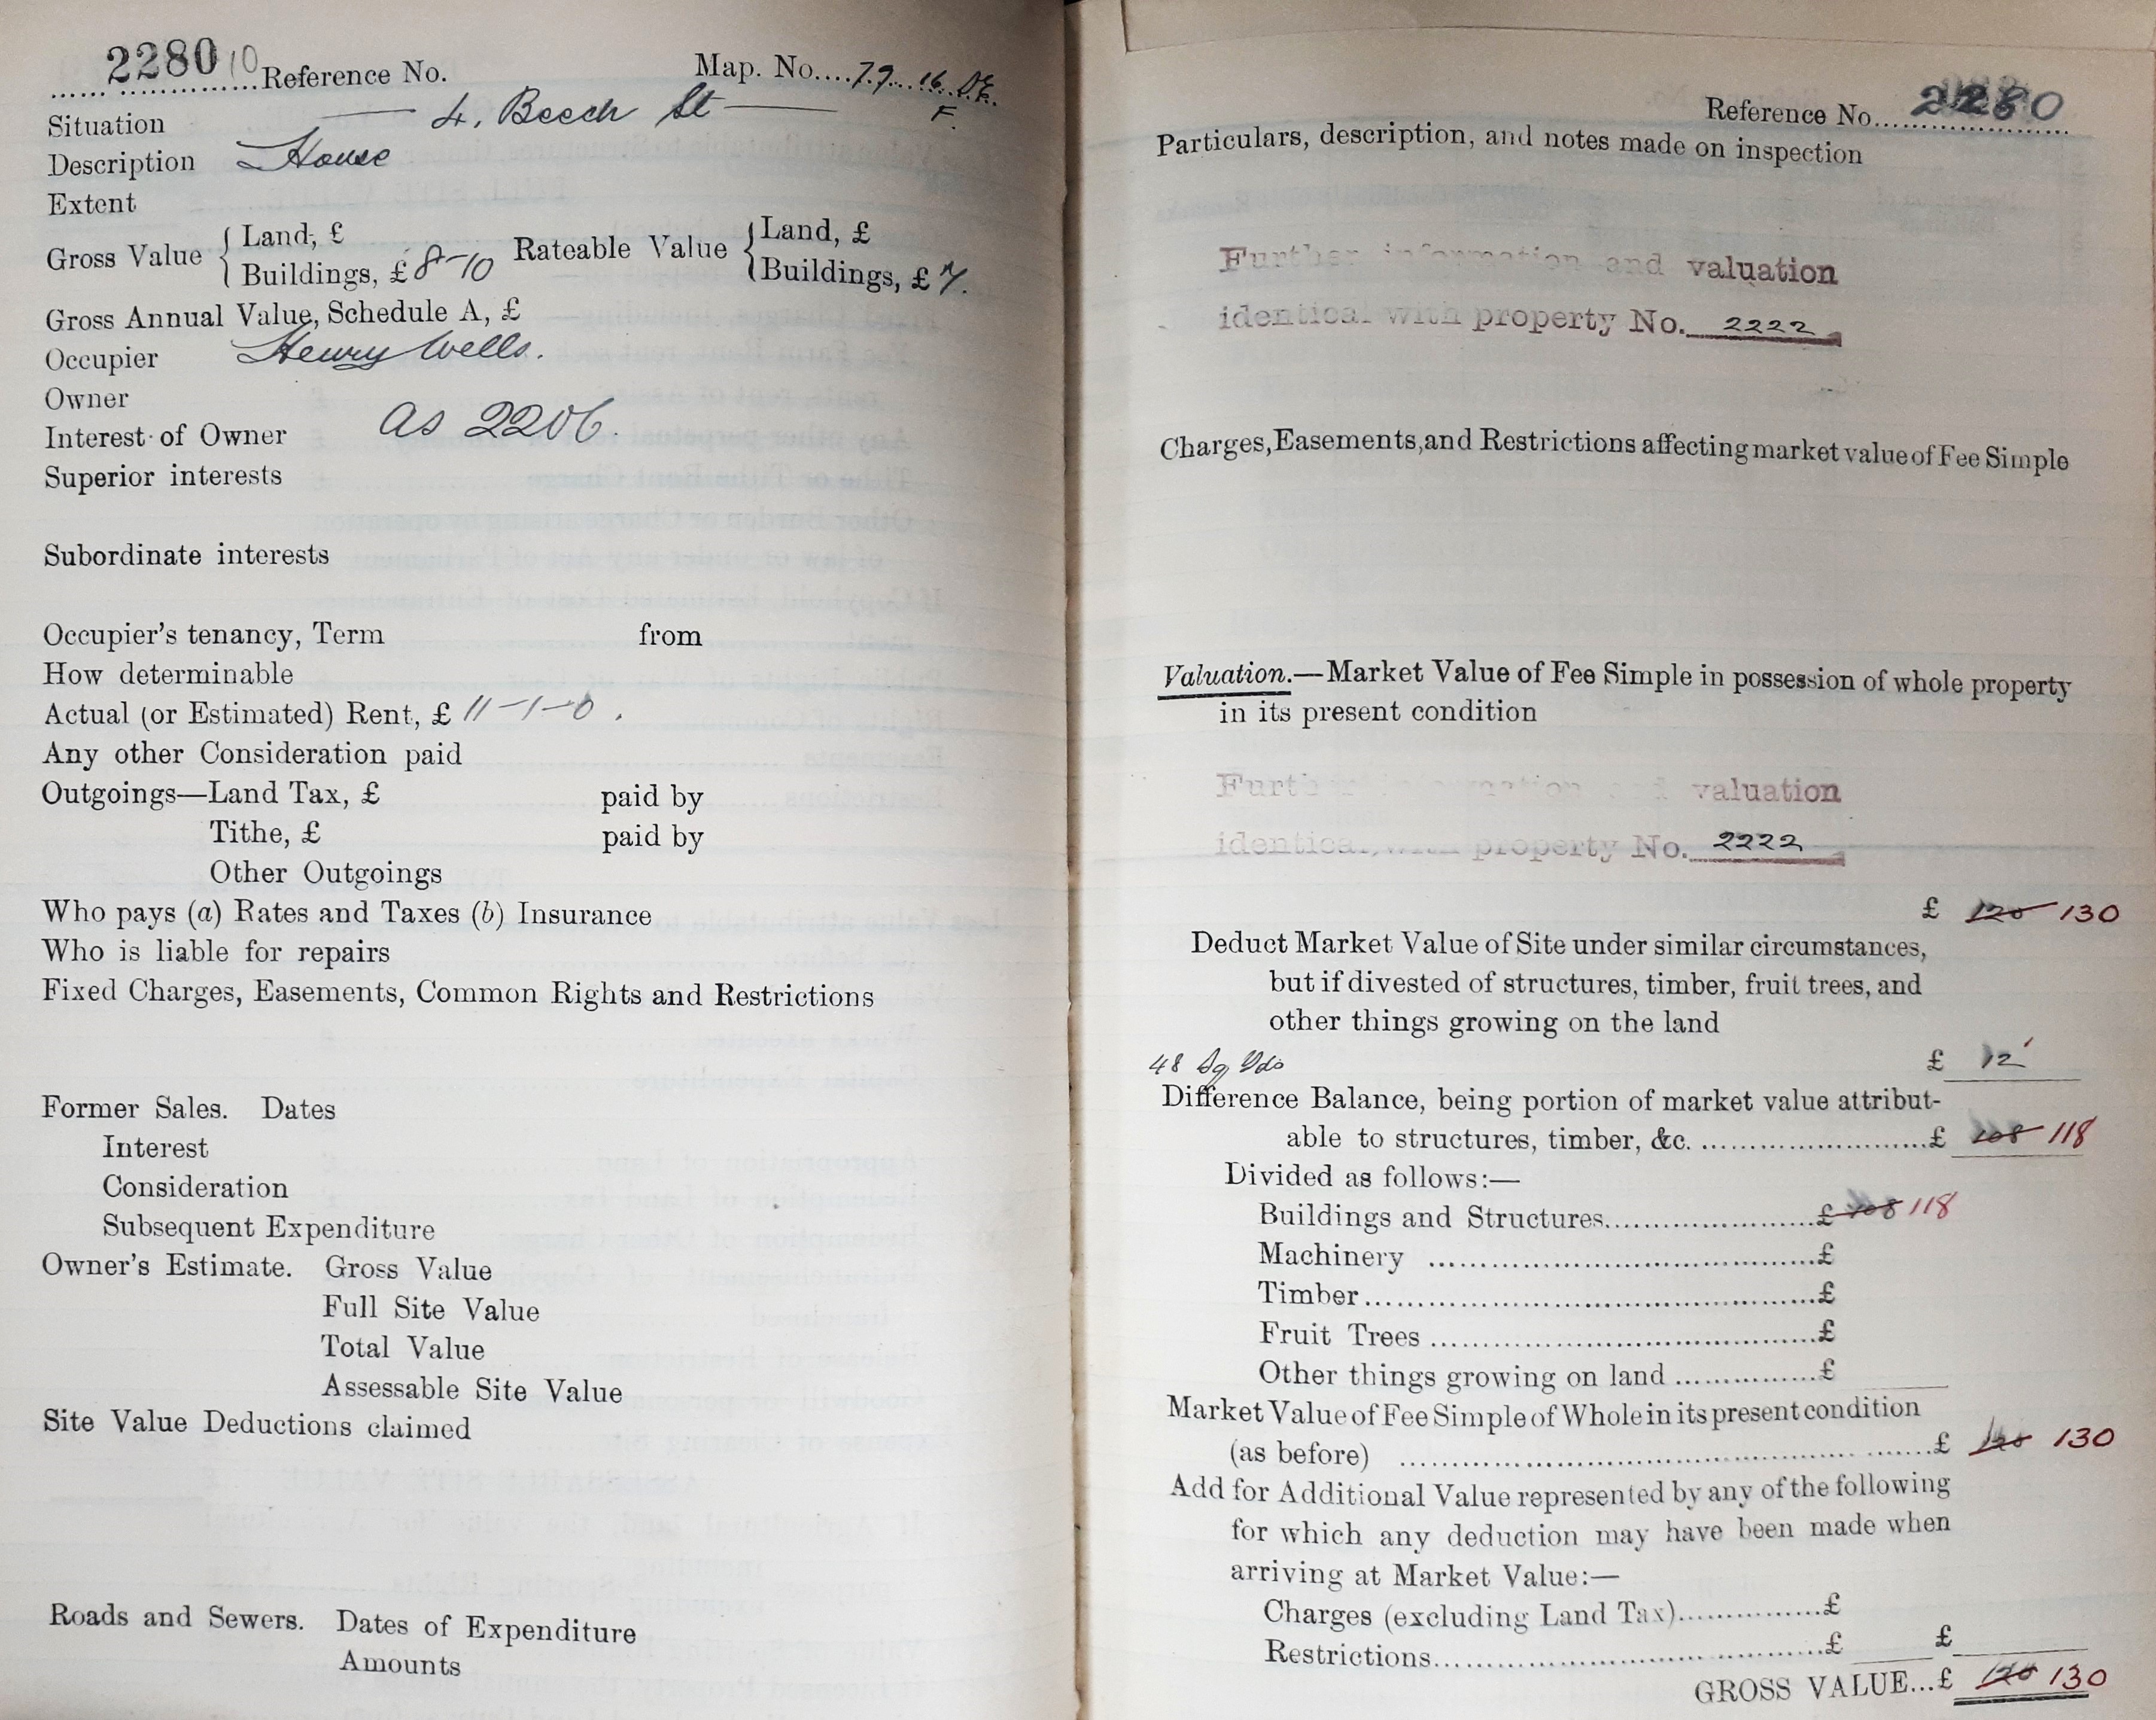 2280 10 Reference No. Map. No.... 79. 16. DE.
F.
Situation — 4, Beech St —
Description House
Extent
Gross Value { Land, £ Rateable Value { Land, £
Buildings, £ 8-10 Buildings, £ 7.
Gross Annual Value, Schedule A, £
Occupier Henry Wells.
Owner
Interest of Owner as 2206.
Superior interests
Subordinate interests
Occupier's tenancy, Term from
How determinable
Actual (or Estimated) Rent, £ 11-1-0.
Any other Consideration paid
Outgoings—Land Tax, £ paid by
Tithe, £ paid by
Other Outgoings
Who pays (a) Rates and Taxes (b) Insurance
Who is liable for repairs
Fixed Charges, Easements, Common Rights and Restrictions
Former Sales. Dates
Interest
Consideration
Subsequent Expenditure
Owner's Estimate. Gross Value
Full Site Value
Total Value
Assessable Site Value
Site Value Deductions claimed
Roads and Sewers. Dates of Expenditure
Amounts
Reference No. 2280
Particulars, description, and notes made on inspection
Further information and valuation
identical with property No. 2222
Charges, Easements, and Restrictions affecting market value of Fee Simple
Valuation.—Market Value of Fee Simple in possession of whole property
in its present condition
Further information and valuation
identical with property No. 2222
£ 120 130
Deduct Market Value of Site under similar circumstances,
but if divested of structures, timber, fruit trees, and
other things growing on the land
48 Sq Yds £ 12
Difference Balance, being portion of market value attribut-
able to structures, timber, &c. ........................£ 108 118
Divided as follows:—
Buildings and Structures........................£ 108 118
Machinery ........................£
Timber........................£
Fruit Trees ........................£
Other things growing on land ................£
Market Value of Fee Simple of Whole in its present condition
(as before) ........................£ 120 130
Add for Additional Value represented by any of the following
for which any deduction may have been made when
arriving at Market Value:—
Charges (excluding Land Tax)................£
Restrictions........................£ £
GROSS VALUE...£ 120 130